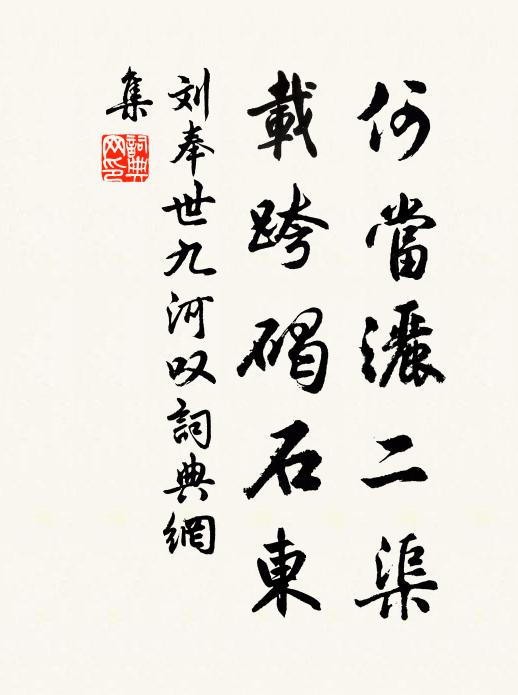 何當灑二渠
載跨碣石東
刘奉世九河叹詞典網
集
詞典
网印